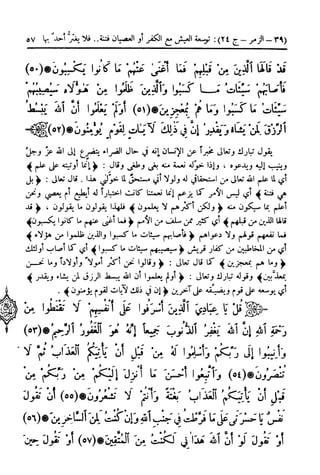 (٣٩ - الزمر - ج ٢٤) : توسعة العيش مع الكفر أو العصيان فتنة.. فلا يغتر أحد بها ٥٧
قَدْ قَالَهَا الَّذِينَ مِنْ قَبْلِهِمْ فَمَا أَغْنَى عَنْهُمْ مَا كَانُوا يَكْسِبُونَ (٥٠)
فَأَصَابَهُمْ سَيِّئَاتُ مَا كَسَبُوا وَالَّذِينَ ظَلَمُوا مِنْ هَؤُلَاءِ سَيُصِيبُهُمْ
سَيِّئَاتُ مَا كَسَبُوا وَمَا هُمْ بِمُعْجِزِينَ (٥١) أَوَلَمْ يَعْلَمُوا أَنَّ اللَّهَ يَبْسُطُ
الرِّزْقَ لِمَنْ يَشَاءُ وَيَقْدِرُ إِنَّ فِي ذَلِكَ لَآيَاتٍ لِقَوْمٍ يُؤْمِنُونَ (٥٢)
يقول تبارك وتعالى مخبراً عن الإنسان إنه في حال الضراء يتضرع إلى الله عزّ وجلّ
وينيب إليه ويدعوه ، وإذا خوله نعمة منه بغى وطغى وقال : ﴿ إنما أوتيته على علم ﴾
أي لما علم الله تعالى من استحقاقي له ولولا أني مستحق لما خولني هذا . قال تعالى : ﴿ بل
هي فتنة ﴾ أي ليس الأمر كما يزعم إنما نعمتنا كانت اختباراً له أيطيع أم يعصي ونحن
أعلم بما سيكون منه ﴿ ولكن أكثرهم لا يعلمون ﴾ فلهذا يقولون ما يقولون ، ﴿ قد
قالها الذين من قبلهم ﴾ أي كثير ممن سلف من الأمم ﴿ فما أغنى عنهم ما كانوا يكسبون ﴾
فما نفعهم قولهم ولا دعواهم ﴿ فأصابهم سيئات ما كسبوا والذين ظلموا من هؤلاء ﴾
أي من المخاطبين من كفار قريش ﴿ سيصيبهم سيئات ما كسبوا ﴾ أي كما أصاب أولئك
﴿ وما هم بمعجزين ﴾ كما قال تعالى : ﴿ وقالوا نحن أكثر أموالاً وأولاداً وما نحن
بمعذبين ﴾ وقوله تبارك وتعالى : ﴿ أولم يعلموا أن الله يبسط الرزق لمن يشاء ويقدر ﴾
أي يوسعه على قوم ويضيقه على آخرين ﴿ إن في ذلك لآيات لقوم يؤمنون ﴾ .
قُلْ يَا عِبَادِيَ الَّذِينَ أَسْرَفُوا عَلَى أَنْفُسِهِمْ لَا تَقْنَطُوا مِنْ
رَحْمَةِ اللَّهِ إِنَّ اللَّهَ يَغْفِرُ الذُّنُوبَ جَمِيعًا إِنَّهُ هُوَ الْغَفُورُ الرَّحِيمُ (٥٣)
وَأَنِيبُوا إِلَى رَبِّكُمْ وَأَسْلِمُوا لَهُ مِنْ قَبْلِ أَنْ يَأْتِيَكُمُ الْعَذَابُ ثُمَّ لَا
تُنْصَرُونَ (٥٤) وَاتَّبِعُوا أَحْسَنَ مَا أُنْزِلَ إِلَيْكُمْ مِنْ رَبِّكُمْ مِنْ
قَبْلِ أَنْ يَأْتِيَكُمُ الْعَذَابُ بَغْتَةً وَأَنْتُمْ لَا تَشْعُرُونَ (٥٥) أَنْ تَقُولَ
نَفْسٌ يَا حَسْرَتَى عَلَى مَا فَرَّطْتُ فِي جَنْبِ اللَّهِ وَإِنْ كُنْتُ لَمِنَ السَّاخِرِينَ (٥٦)
أَوْ تَقُولَ لَوْ أَنَّ اللَّهَ هَدَانِي لَكُنْتُ مِنَ الْمُتَّقِينَ (٥٧) أَوْ تَقُولَ حِينَ